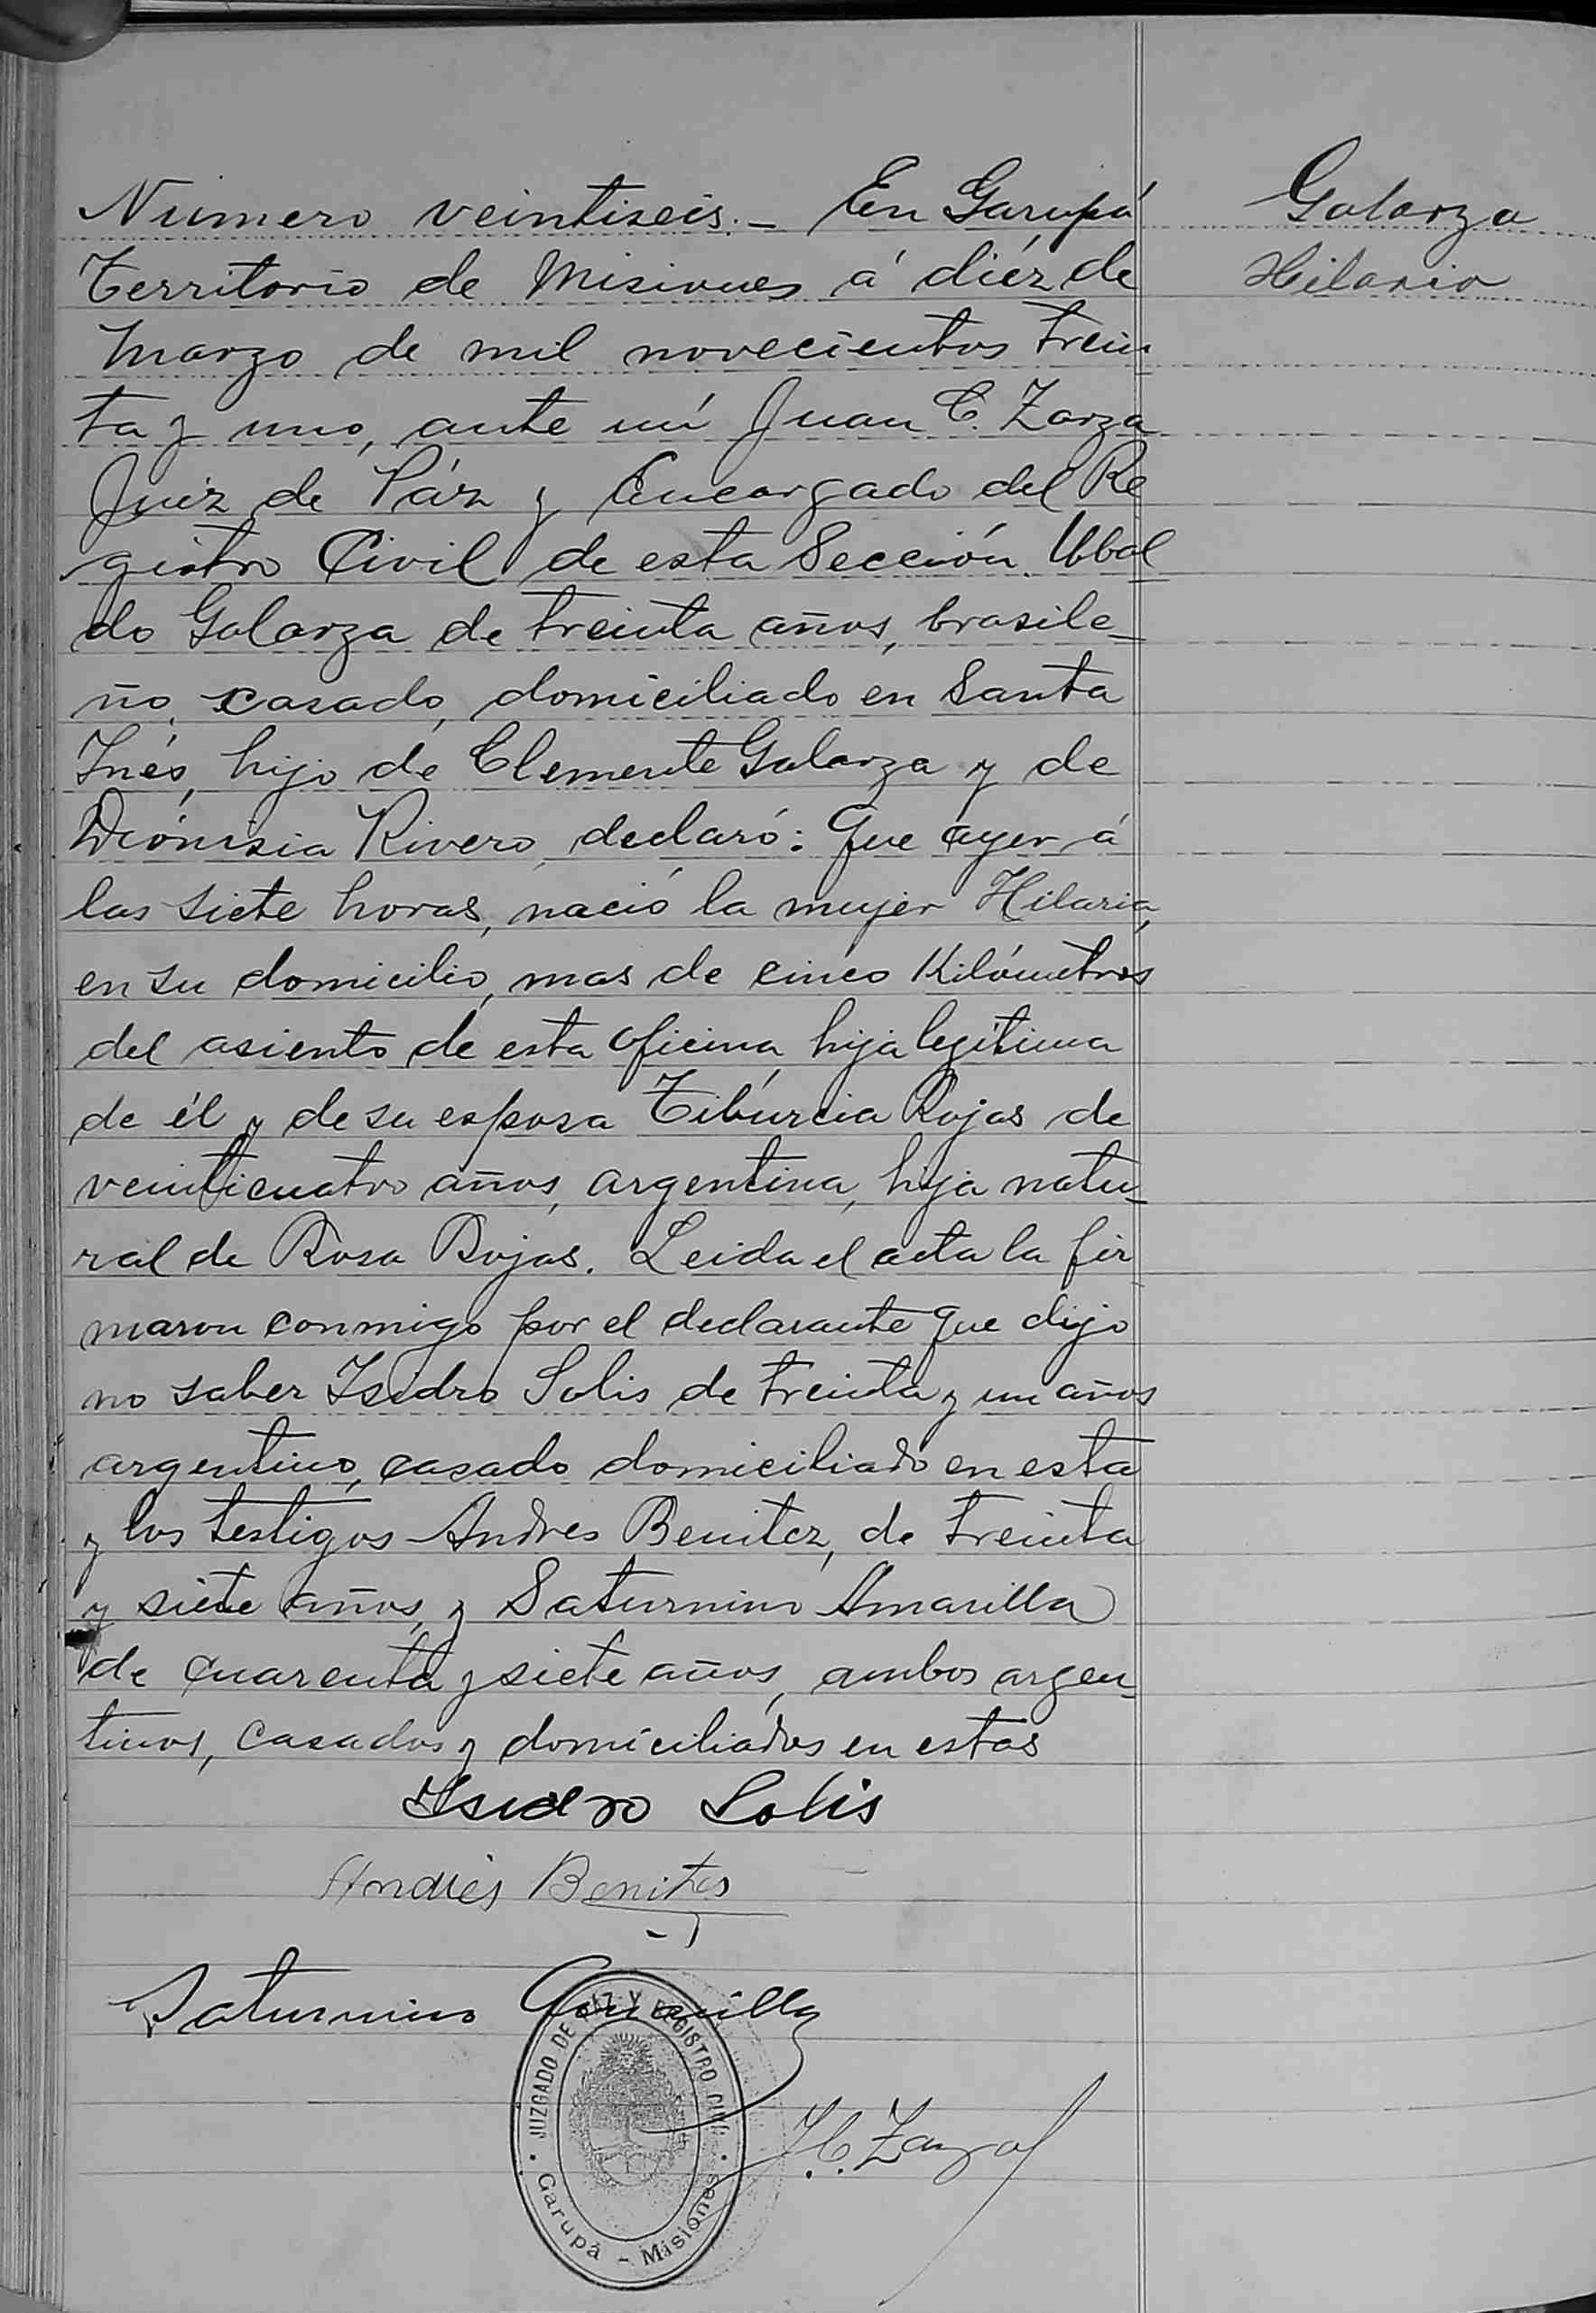 Número veintiseis.- En Garupá
Galarza
Territorio de Misiones á diéz de
Hilaria
Marzo de mil novecientos trein
ta y uno, ante mí Juan C. Zarza
Juéz de Páz y Encargado del Re
gistro Civil de esta Sección. Ubal
do Galarza de treinta años, brasile-
ño, casado, domiciliado en Santa
Inés, hijo de Clemente Galarza y de
Diónisia Rivero, declaró: Que ayer á
las siete horas, nació la mujer Hilaria,
en su domicilio, mas de cinco Kilómetros
del asiento de esta oficina, hija legítima
de él y de su esposa Tibúrcia Rojas de
veinticuatro años, argentina, hija natu-
ral de Rosa Rojas. Leida el acta la fir
maron conmigo por el declarante que dijo
no saber Isidro Solis de treinta y un años
argentino, casado domiciliado en esta
y los testigos Andres Benitez, de treinta
y siete años, y Saturnino Amarilla
de cuarenta y siete años, ambos argen-
tinos, casados y domiciliados en estas
Isidro Solis
Andrés Benites
Saturnino Amarilla
JUZGADO DE PAZ Y REGISTRO CIVIL
J.C. Zarza
Garupá - Misiones